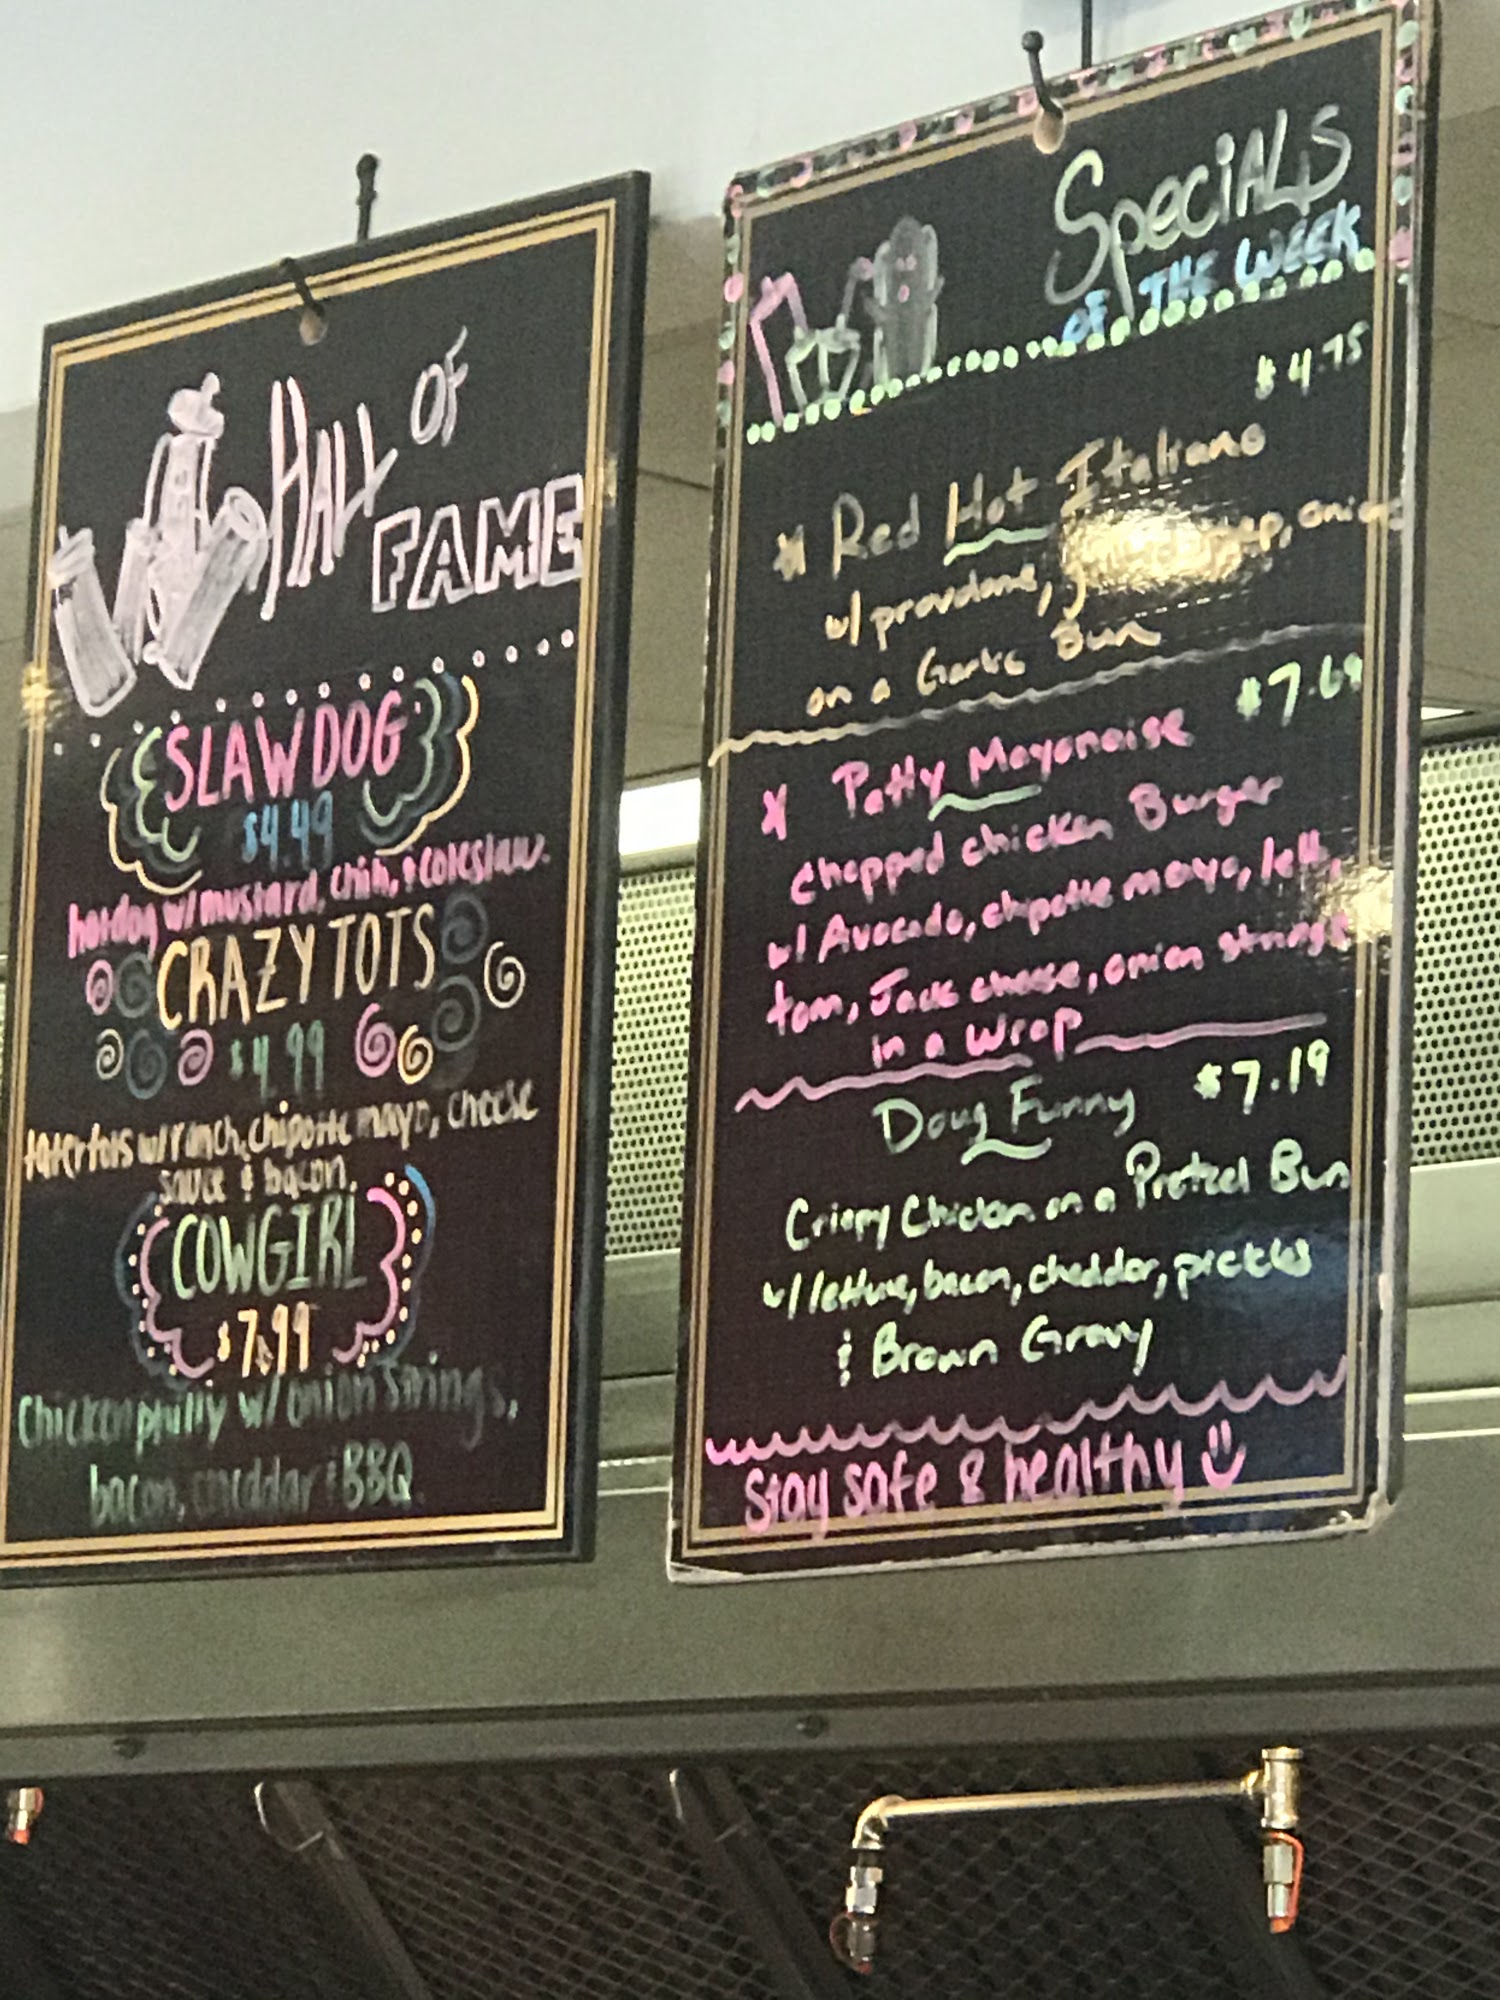 HALL OF
FAME
SLAW DOG
$4.49
hotdog w/ mustard, chili, & coleslaw.
CRAZY TOTS
$4.99
tatertots w/ ranch, chipotle mayo, cheese
sauce & bacon.
COWGIRL
$7.99
Chicken philly w/ onion strings,
bacon, cheddar & BBQ
Specials
OF THE WEEK
$4.75
* Red Hot Italiano
w/ provolone, onions
on a Garlic Bun
$7.69
* Patty Mayonaise
Chopped chicken Burger
w/ Avocado, chipotle mayo, lett,
tom, Jack cheese, onion strings
in a Wrap
Doug Funny $7.19
Crispy Chicken on a Pretzel Bun
w/ lettuce, bacon, cheddar, pickles
& Brown Gravy
Stay safe & healthy